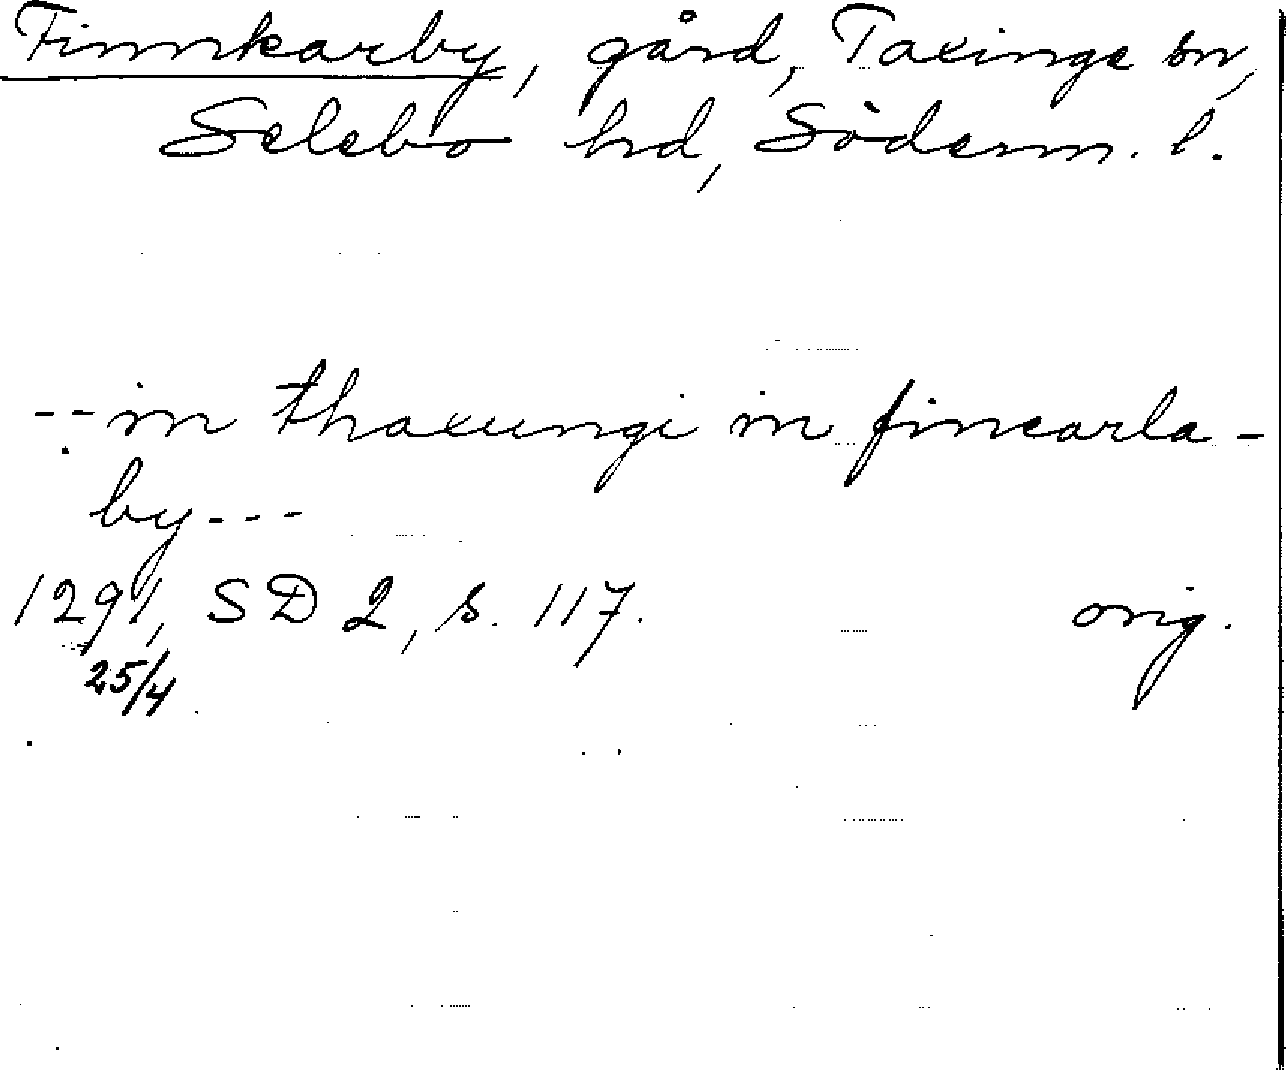 Finnkarby, gård, Taxinge sn,
Selebo hd, Söderm. l.
-- in thaxungi in fincarla-
by ---
1291, SD 2, s. 117. orig.
25/4